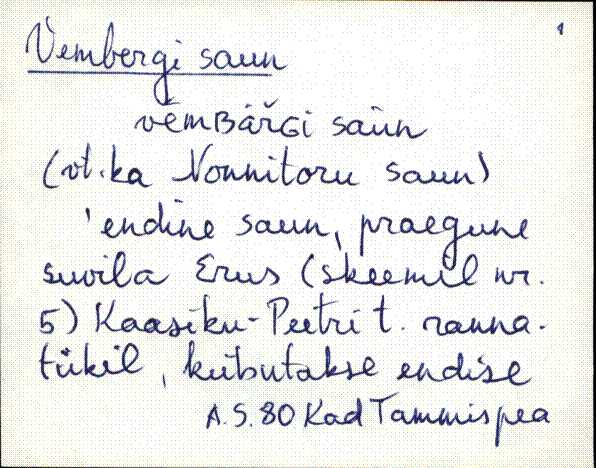 1
Vembergi saun
vèmʙäřɢi saùn
(vt. ka Nonnitoru saun)
'endine saun, praegune
suvila Erus (skeemil nr.
5) Kaasiku-Peetri t. ranna-
tükil, kutsutakse endise
A.S. 80 Kad Tammispea